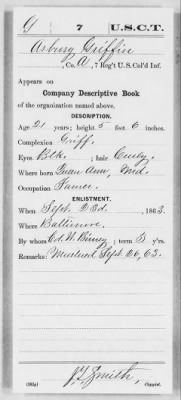 G 7 U.S.C.T.
Asbury Griffin
, Co. A, 7 Reg't U.S. Col'd Inf.
Appears on
Company Descriptive Book
of the organization named above.
DESCRIPTION.
Age 21 years; height 5 feet 6 inches.
Complexion Griff.
Eyes Blk. ; hair Curly.
Where born Queen Ann, Md.
Occupation Farmer.
ENLISTMENT.
When Sept. 23d. , 1863.
Where Baltimore.
By whom Col. W. Birney; term 3 y'rs.
Remarks: Mustered Sept. 26, 63.
Smith,
Copyist.